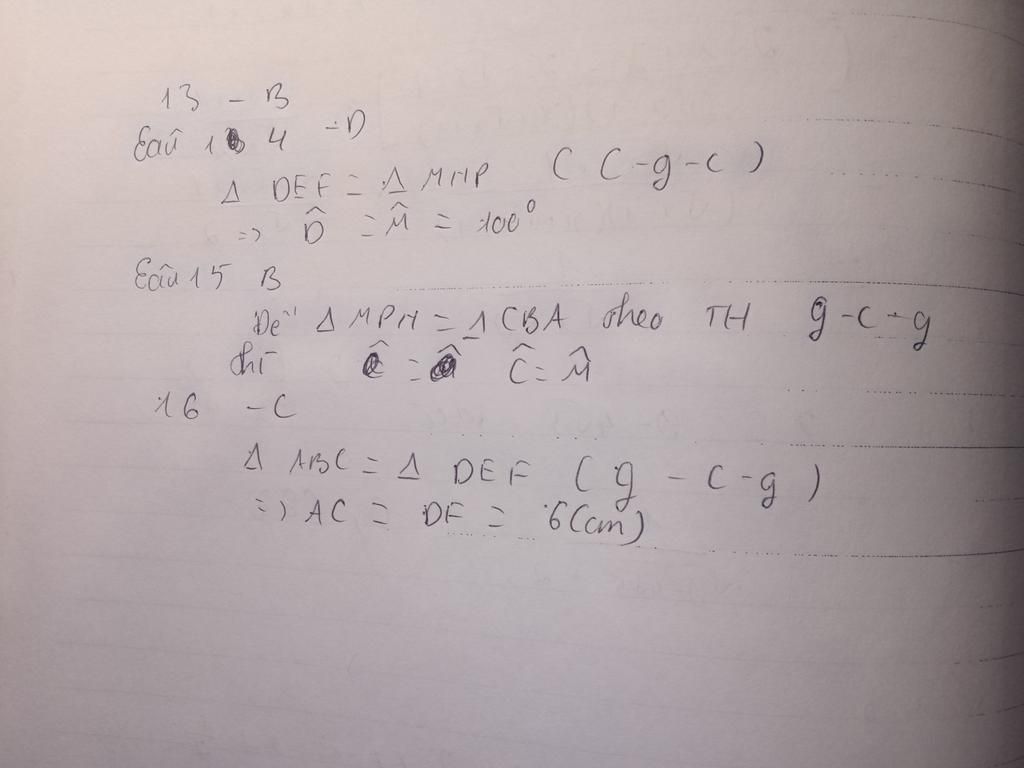 13 - B
Câu 14 - D
Δ DEF = Δ MNP (C-g-c)
=> D̂ = M̂ = 100°
Câu 15 B
Để Δ MPN = Δ CBA theo TH g-c-g
thì Ĉ = M̂
16 - C
Δ ABC = Δ DEF (g-c-g)
=> AC = DF = 6(cm)